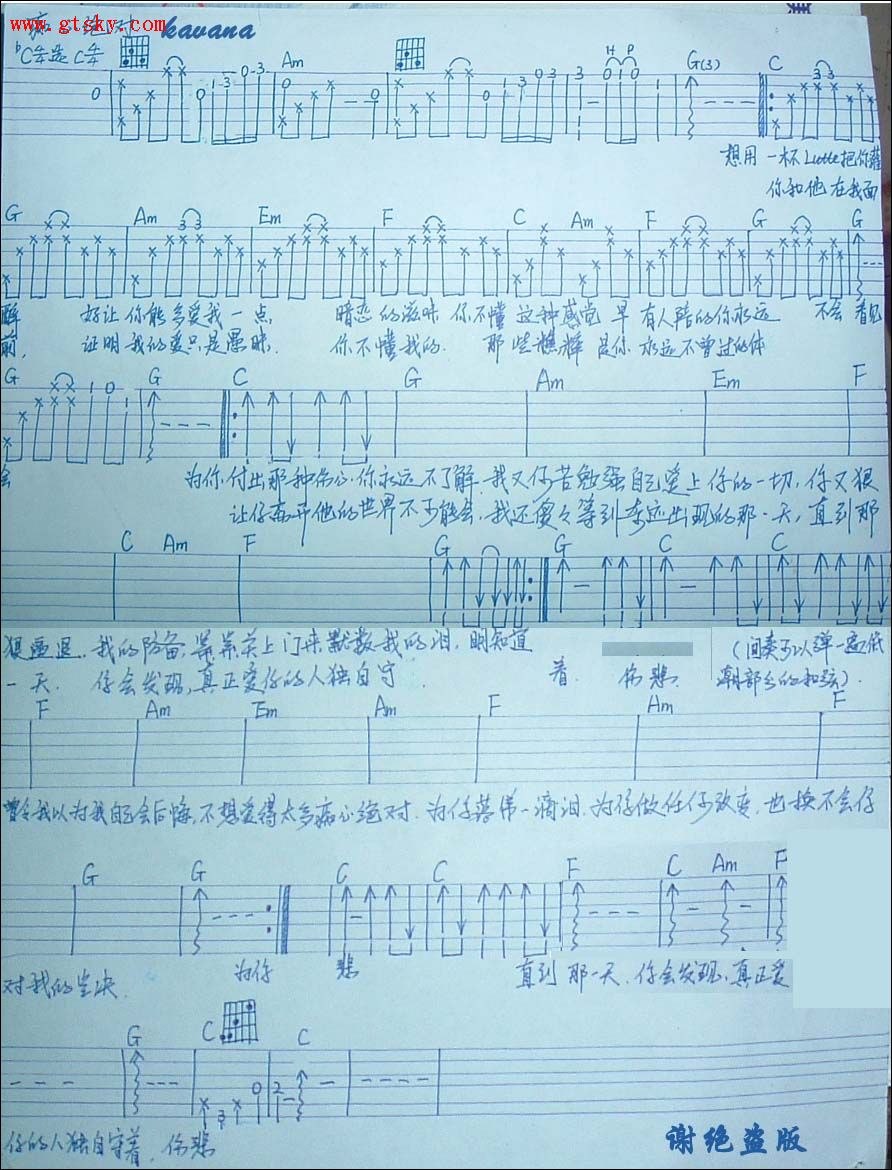 痴 绝对 kavana
www.gtsky.com
Am H P G(3) C
想用一杯Latte把你灌
你和他在我面
G Am Em F C Am F G G
醉 好让你能多爱我一点 暗恋的滋味 你不懂这种感觉 早有人陪的你永远 不会 看见
前, 证明我的爱只是愚昧. 你不懂我的. 那些憔悴 是你 永远不曾过的体
G G C G Am Em F
会 为你,付出那种伤心,你永远不了解.我又何苦勉强自己爱上你的一切,你又狠
让你离开他的世界不可能会.我还傻々等到奇迹出现的那一天,直到那
C Am F G G C C
狠逼退.我的防备,算算关上门来默数我的泪.明知道 (间奏可以弹一遍低
一天.你会发现,真正爱你的人独自守 着. 伤悲. 潮部分的和弦).
F Am Em Am F Am F
曾令我以为我自己会后悔,不想爱得太多痴心绝对.为你落第一滴泪.为你做任何改变.也换不会你
G G C C F C Am F
对我的坚决. 为你 悲 直到那一天.你会发现,真正爱
G C C
你的人独自守着,伤悲
谢绝盗版